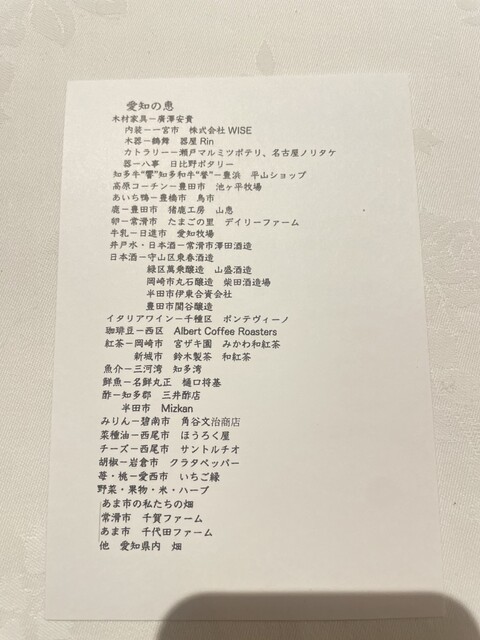 愛知の恵
木材家具ー廣澤安貴
内装ー一宮市　株式会社 WISE
木器ー鶴舞　器屋 Rin
カトラリーー瀬戸マルミツポテリ、名古屋ノリタケ
器ー八事　日比野ポタリー
知多牛“響”知多和牛“誉”ー豊浜　平山ショップ
高原コーチンー豊田市　池ヶ平牧場
あいち鴨ー豊橋市　鳥市
鹿ー豊田市　猪鹿工房　山恵
卵ー常滑市　たまごの里　デイリーファーム
牛乳ー日進市　愛知牧場
井戸水・日本酒ー常滑市澤田酒造
日本酒ー守山区東春酒造
緑区萬乗醸造　山盛酒造
岡崎市丸石醸造　柴田酒造場
半田市伊東合資会社
豊田市関谷醸造
イタリアワインー千種区　ポンテヴィーノ
珈琲豆ー西区　Albert Coffee Roasters
紅茶ー岡崎市　宮ザキ園　みかわ和紅茶
新城市　鈴木製茶　和紅茶
魚介ー三河湾　知多湾
鮮魚ー名鮮丸正　樋口将基
酢ー知多郡　三井酢店
半田市　Mizkan
みりんー碧南市　角谷文治商店
菜種油ー西尾市　ほうろく屋
チーズー西尾市　サントルチオ
胡椒ー岩倉市　クラタペッパー
苺・桃ー愛西市　いちご縁
野菜・果物・米・ハーブ
あま市の私たちの畑
常滑市　千賀ファーム
あま市　千代田ファーム
他　愛知県内　畑